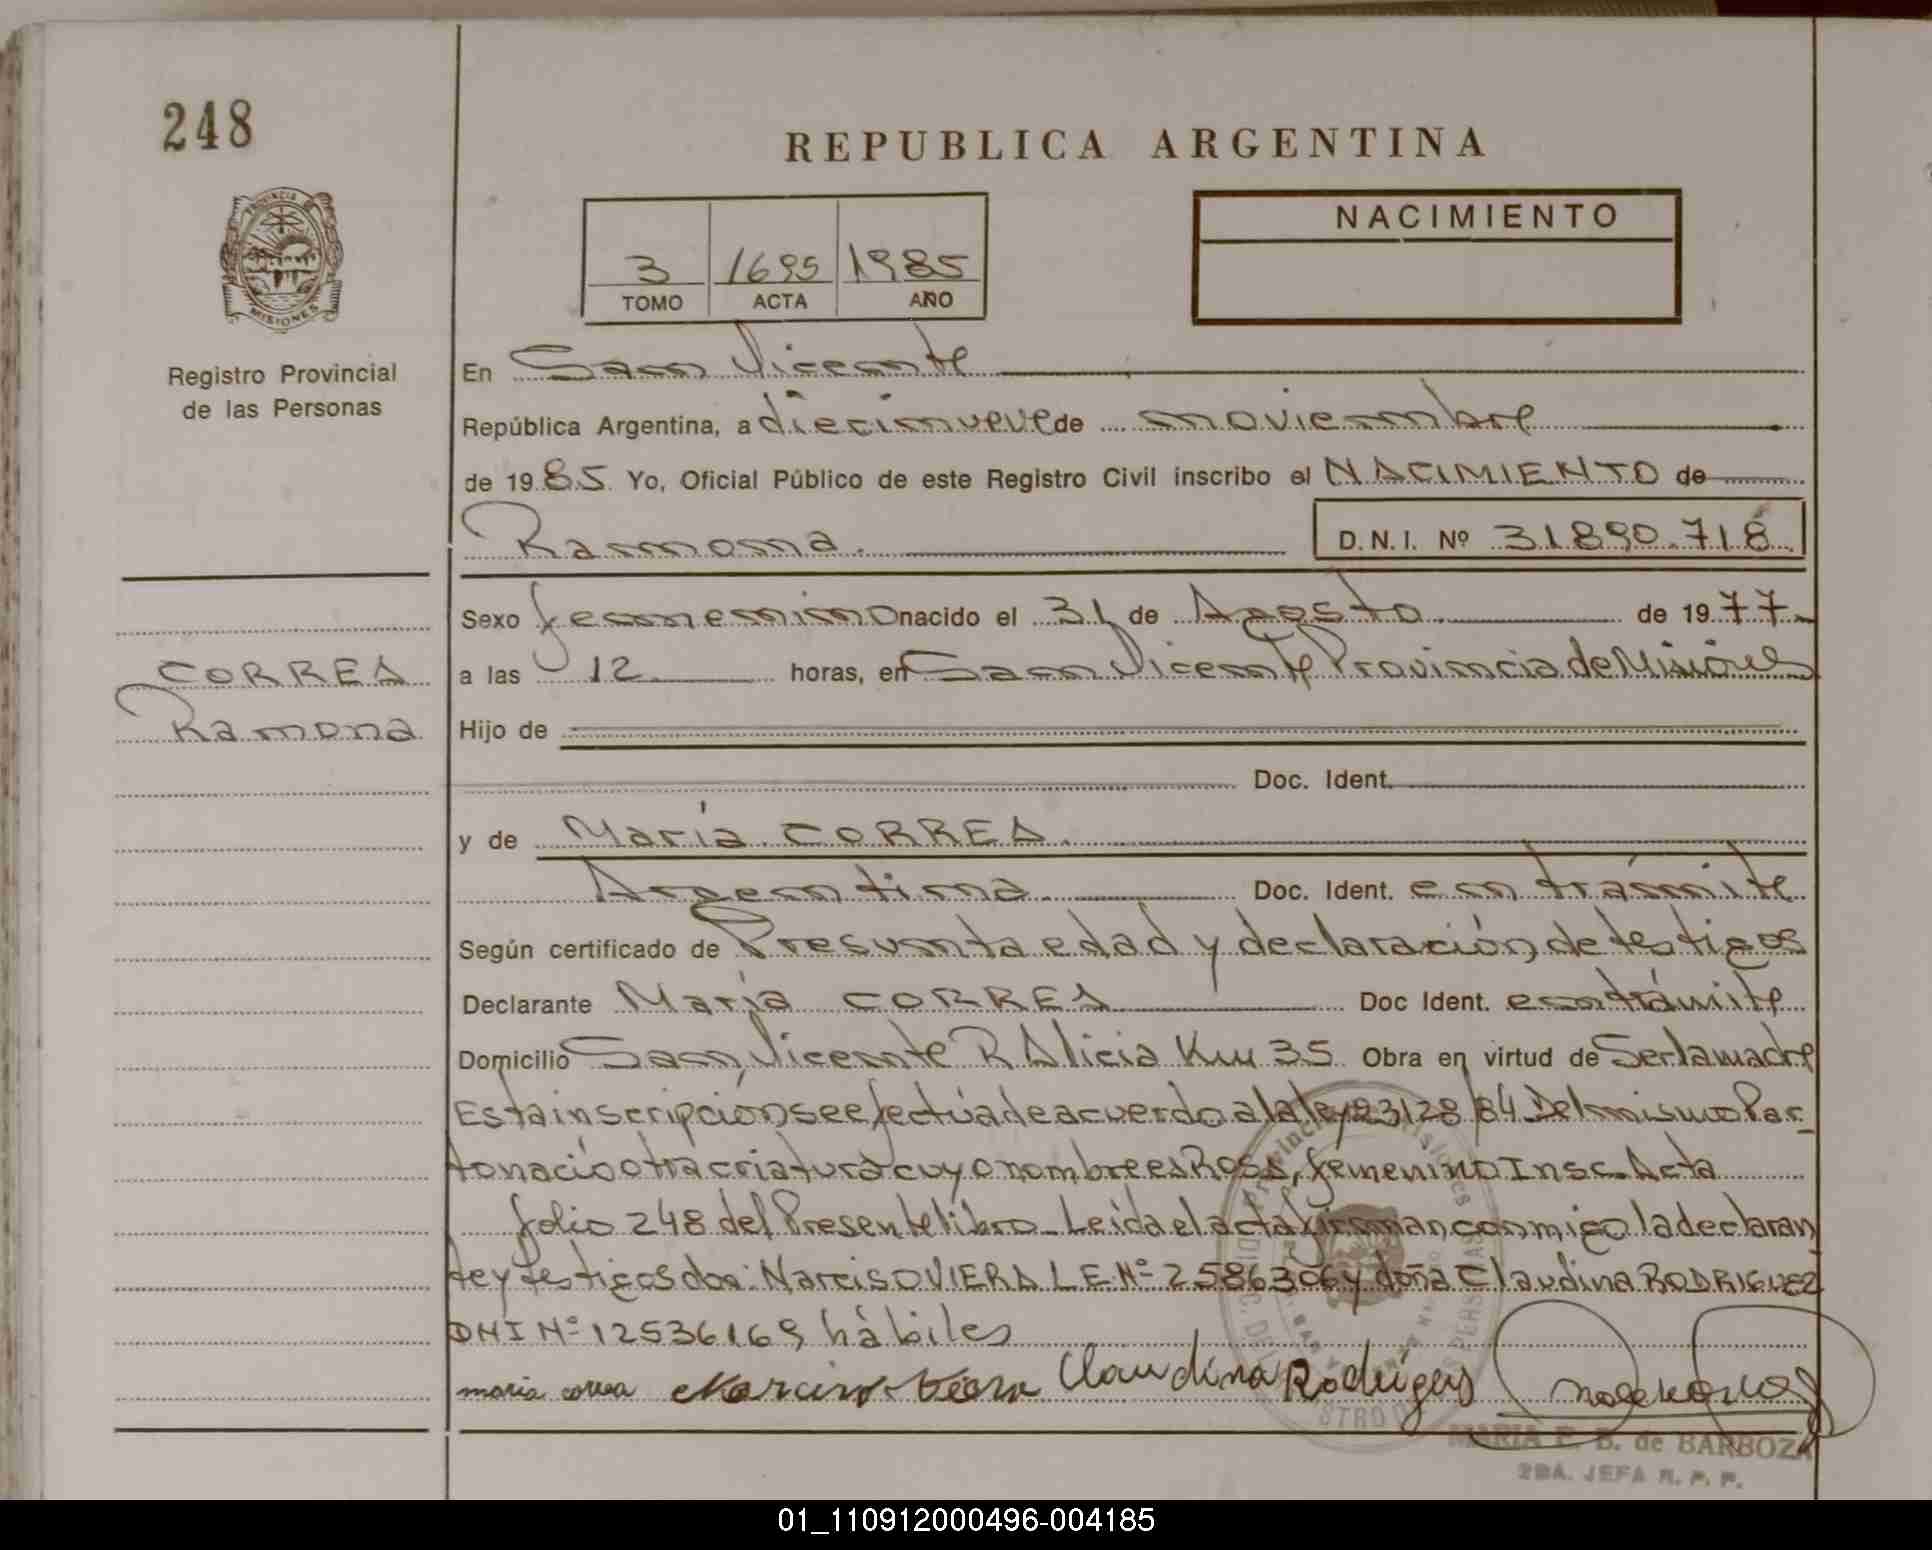 248
REPUBLICA ARGENTINA
PROVINCIA
MISIONES
Registro Provincial
de las Personas
NACIMIENTO
3 1695 1985
TOMO ACTA AÑO
En San Vicente
República Argentina, a diecinueve de noviembre
de 1985. Yo, Oficial Público de este Registro Civil inscribo el NACIMIENTO de
Ramona. D.N.I. Nº 31890.718.
Sexo femenino nacido el 31 de Agosto de 1977
CORREA
Ramona
a las 12 horas, en San Vicente Provincia de Misiones
Hijo de
Doc. Ident.
y de María CORREA.
Argentina Doc. Ident. en trámite
Según certificado de Presunta edad y declaración de testigos
Declarante María CORREA Doc Ident. en trámite
Domicilio San Vicente R Alicia Km 35 Obra en virtud de Ser la madre
Esta inscripción se efectúa de acuerdo a la ley 23128/84. Del mismo Par-
to nació otra criatura cuyo nombre es Rosa, femenino Insc. Acta
folio 248 del Presente libro_ Leida el acta firman conmigo la declaran
te y testigos don: Narciso VIERA L.E. Nº 2586306 y doña Claudina RODRIGUEZ
DNI Nº 12536169 hábiles
maria correa Narciso Viera Claudina Rodrigues
MARIA E. B. de BARBOZA
2DA. JEFA R. P. P.
01_110912000496-004185